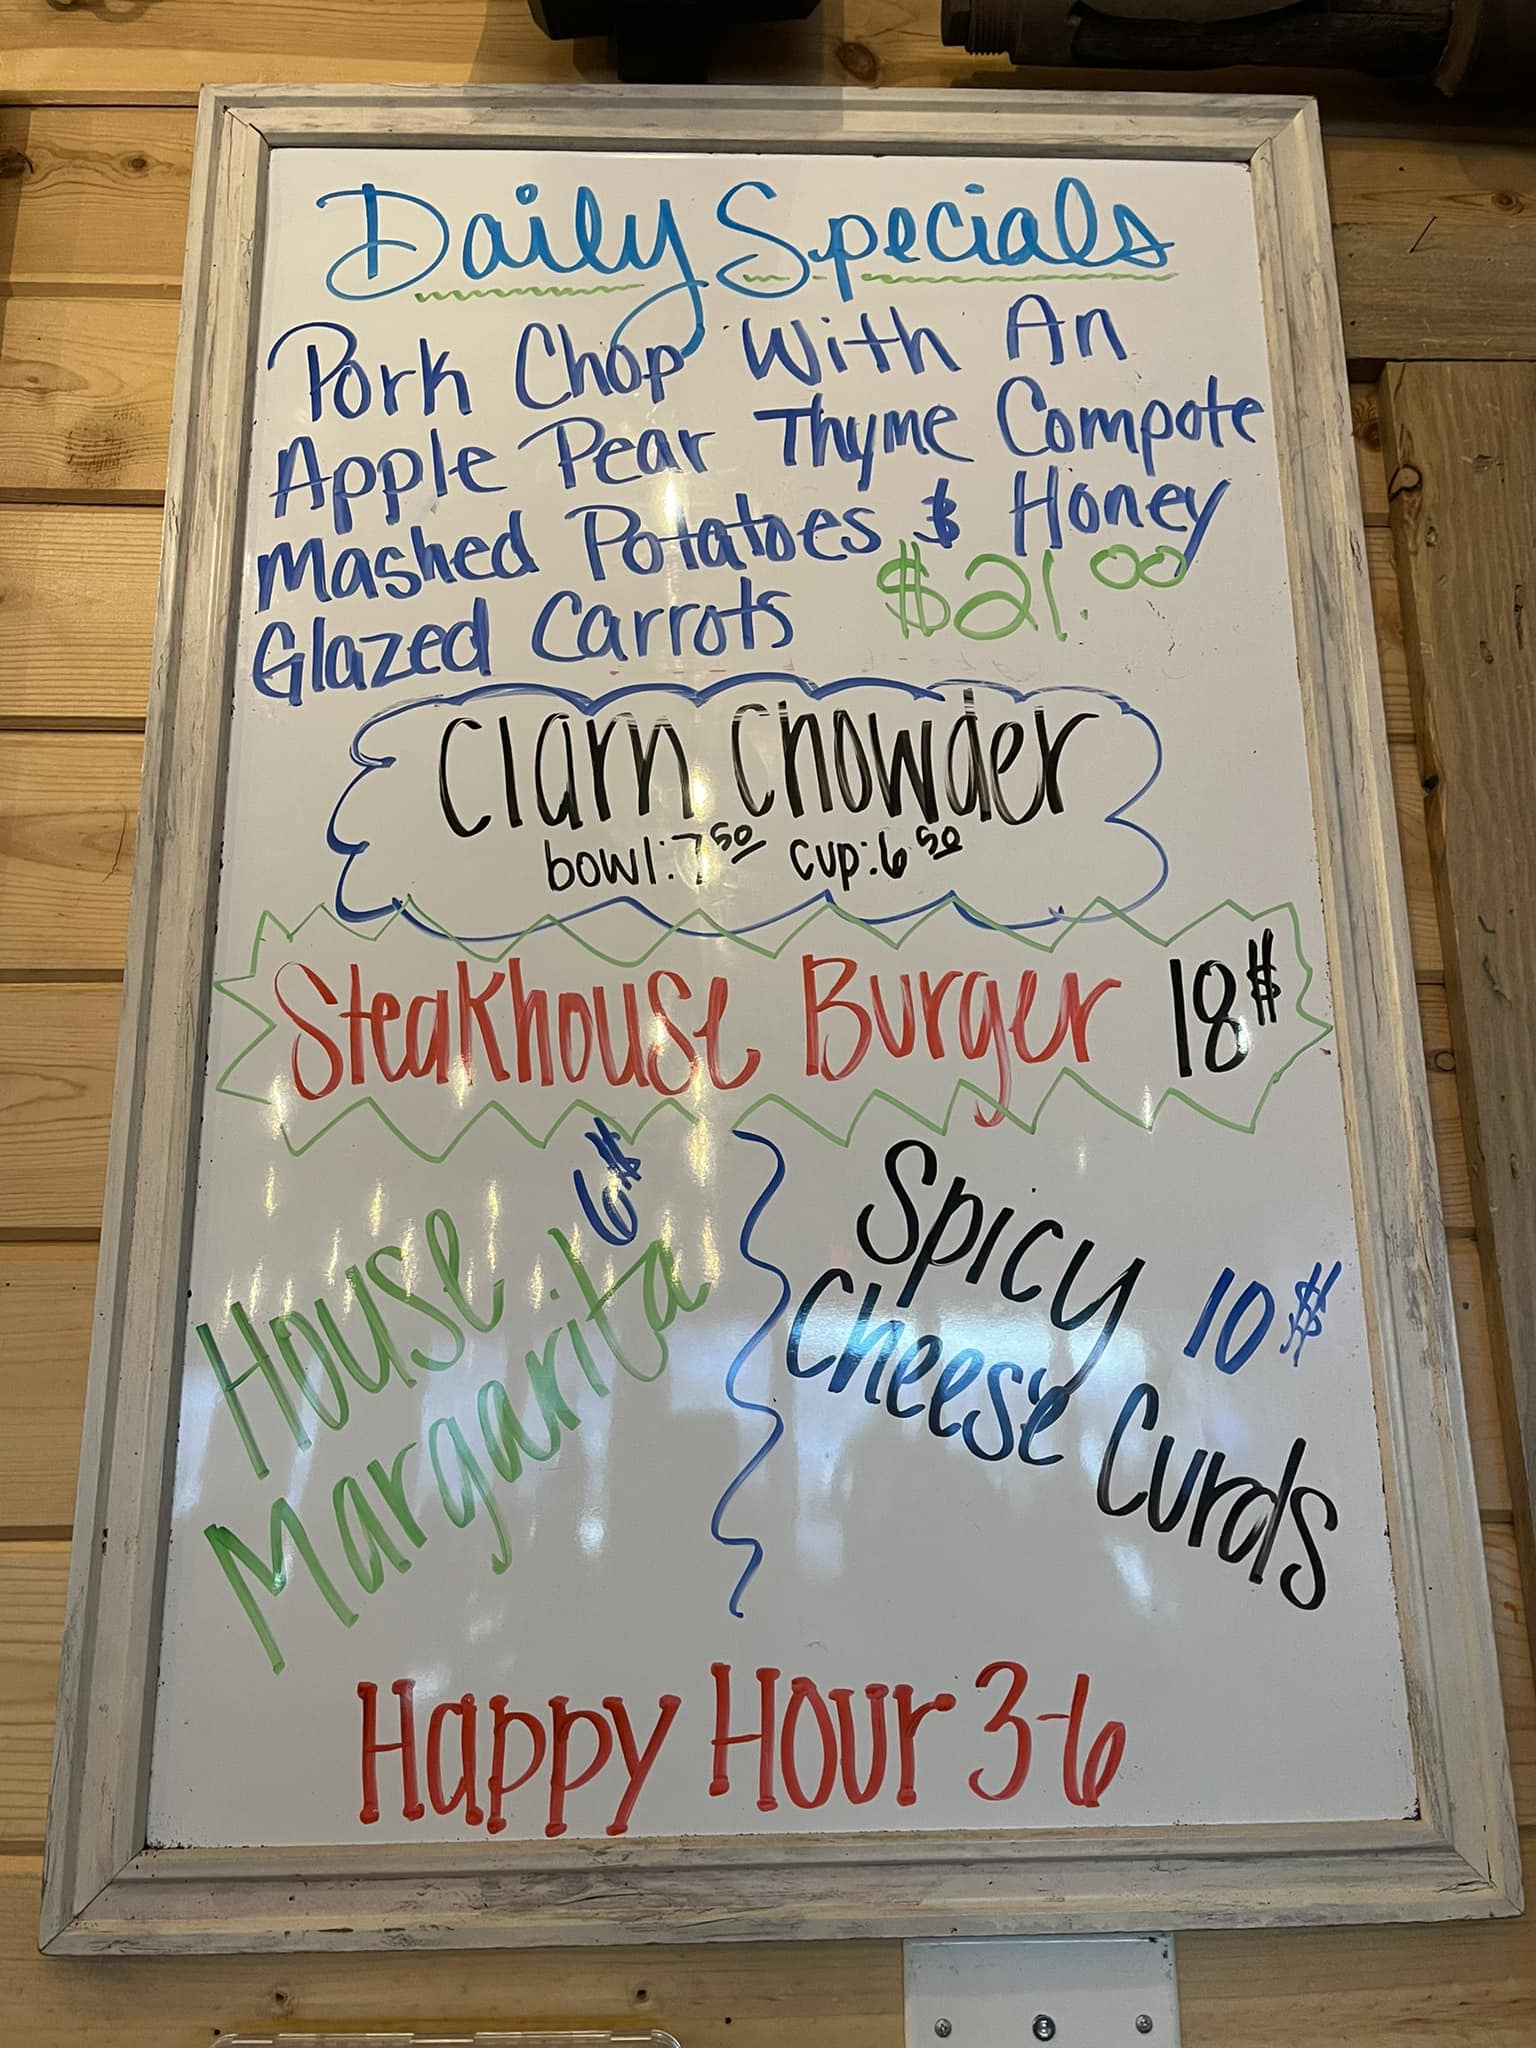 Daily Specials
Pork Chop With An
Apple Pear Thyme Compote
Mashed Potatoes & Honey
Glazed Carrots $21.00
Clam Chowder
bowl:7 50 cup:6 50
Steakhouse Burger 18$
6$
House
Margarita
Spicy
Cheese Curds
10$
Happy Hour 3-6